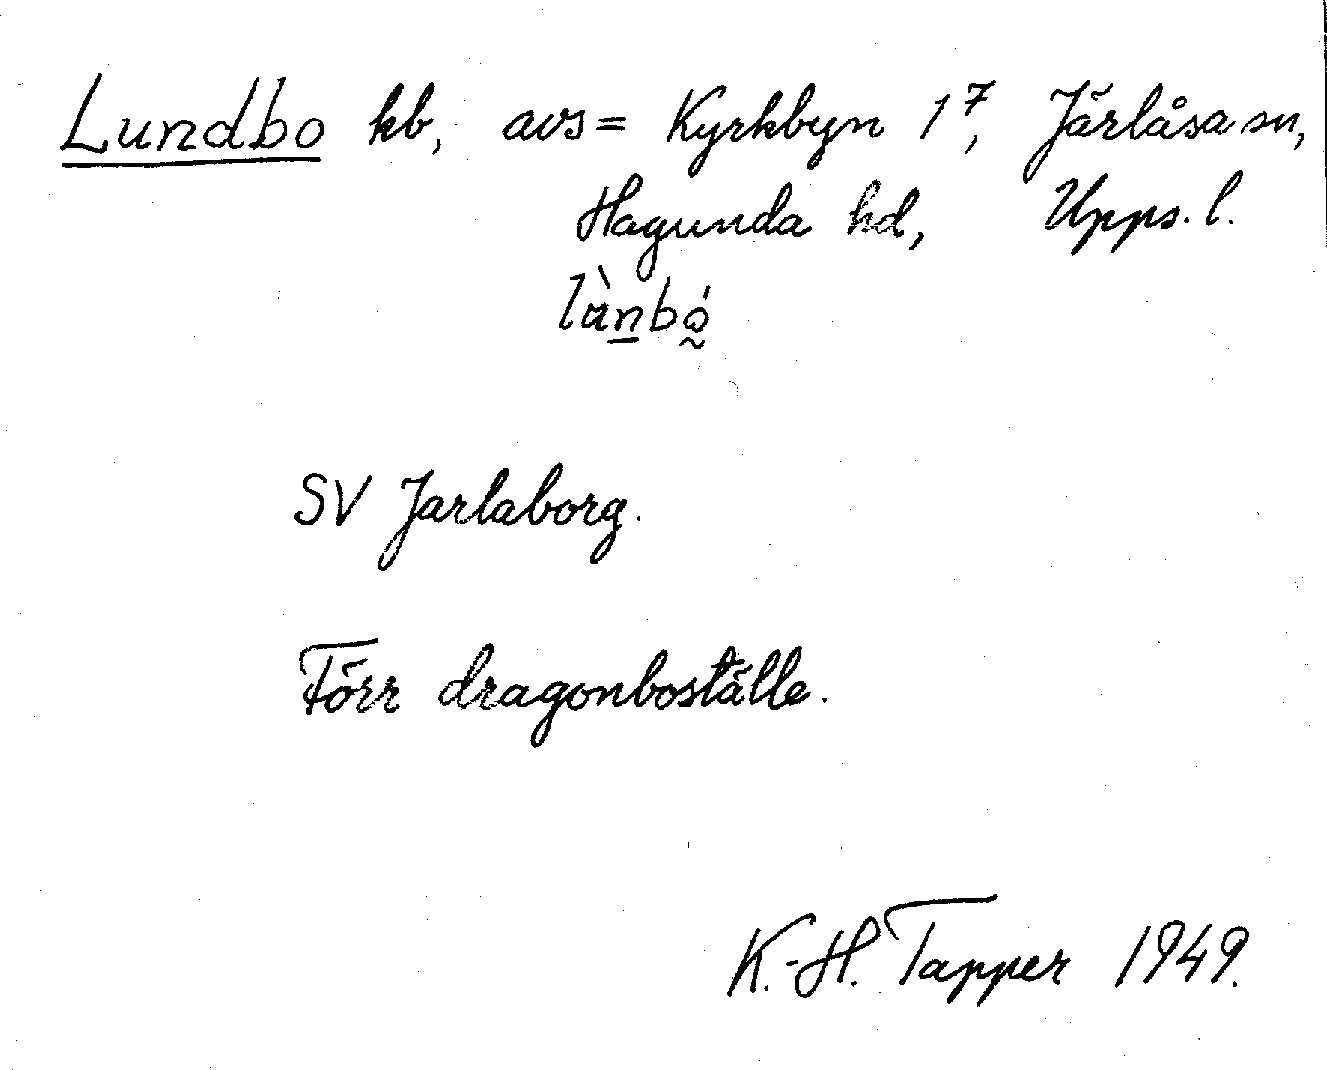 Lundbo kb, avs = Kyrkbyn 1⁷, Järlåsa sn,
Hagunda hd, Upps. l.
SV Jarlaborg.
Förr dragonboställe.
K.-H. Tapper 1949.